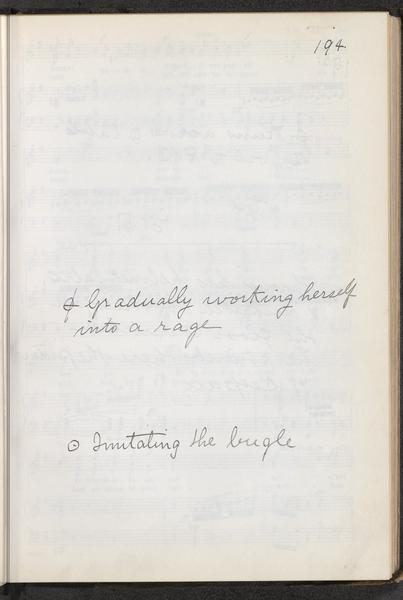 194
¢ Gradually working herself
into a rage
⊙ Imitating the bugle